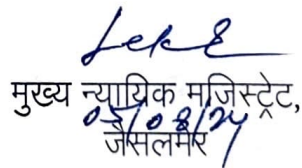 मुख्य न्यायिक मजिस्ट्रेट,
05/08/24
जैसलमेर